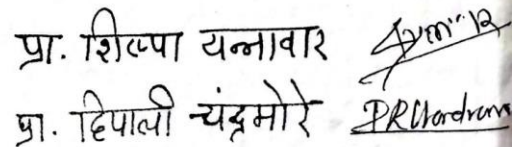 प्रा. शिल्पा यन्नावार
प्रा. दिपाली चंद्रमोरे